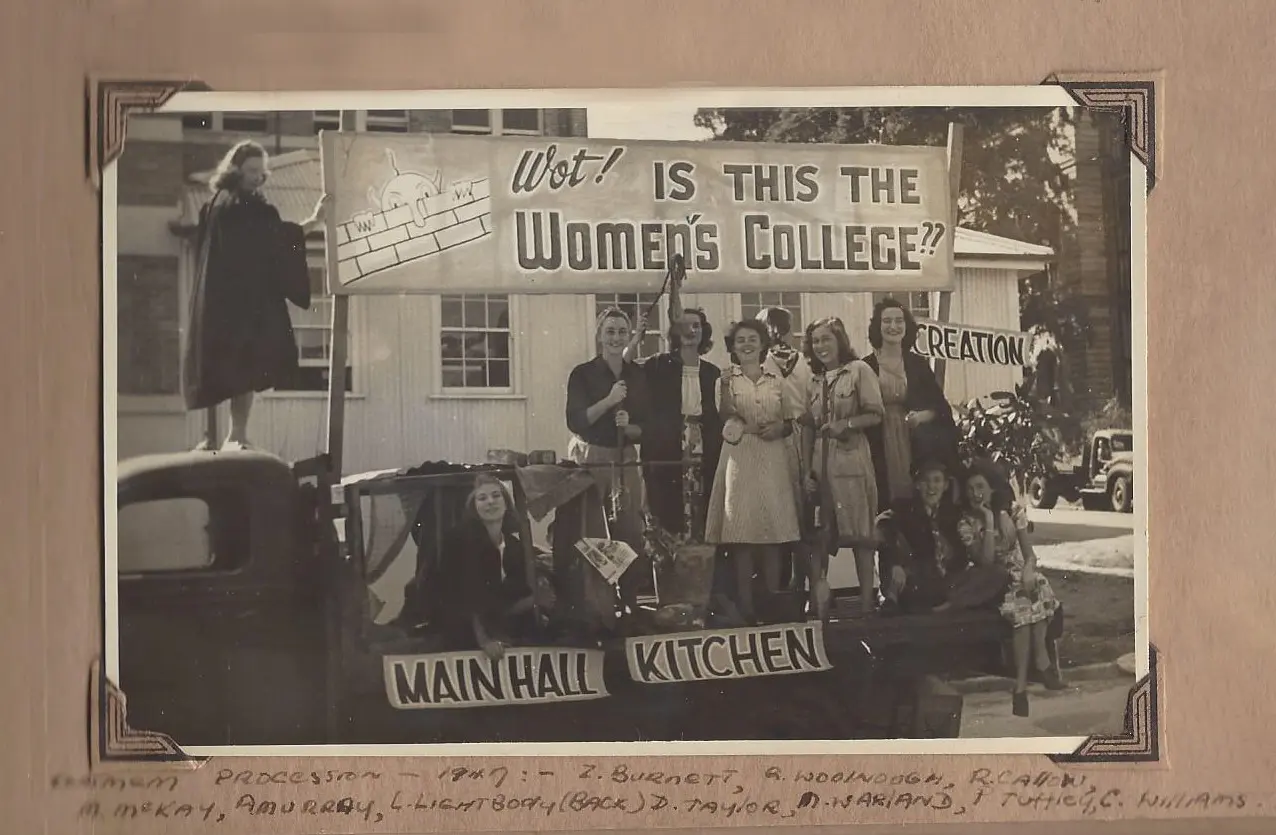 Wot! IS THIS THE
WOMEN'S COLLEGE??
CREATION
MAIN HALL
KITCHEN
PROCESSION - 1947:- Z. BURNETT, R. WOOLNOUGH, R. CALLOW,
M. McKAY, A. MURRAY, L. LIGHTBODY (BACK) D. TAYLOR, M. WARLAND, C. WILLIAMS.